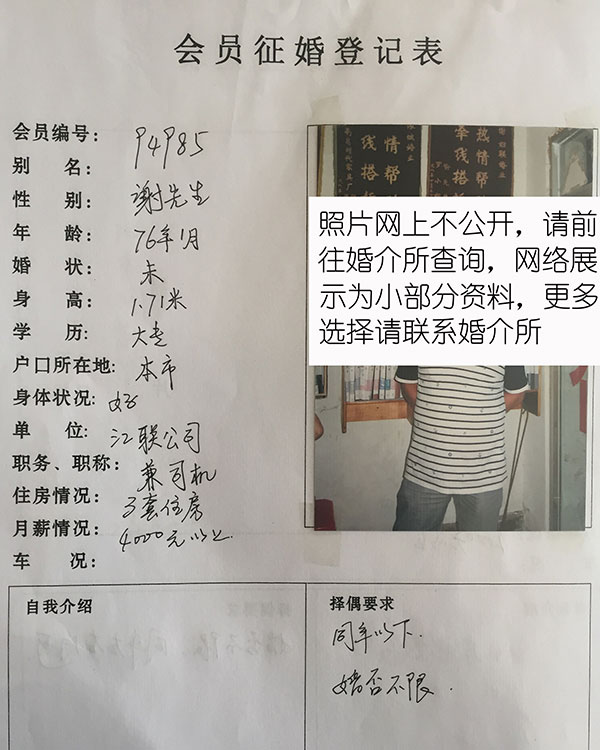 会员征婚登记表
会员编号：P4P85
别 名：
性 别：谢先生
年 龄：76年1月
婚 状：未
身 高：1.71米
学 历：大专
户口所在地：本市
身体状况：好
单 位：江联公司
职务、职称：兼司机
住房情况：3套住房
月薪情况：4000元以上
车 况：
热情帮
牵线搭
情帮
线搭
照片网上不公开，请前
往婚介所查询，网络展
示为小部分资料，更多
选择请联系婚介所
自我介绍
择偶要求
同年以下.
婚否不限.